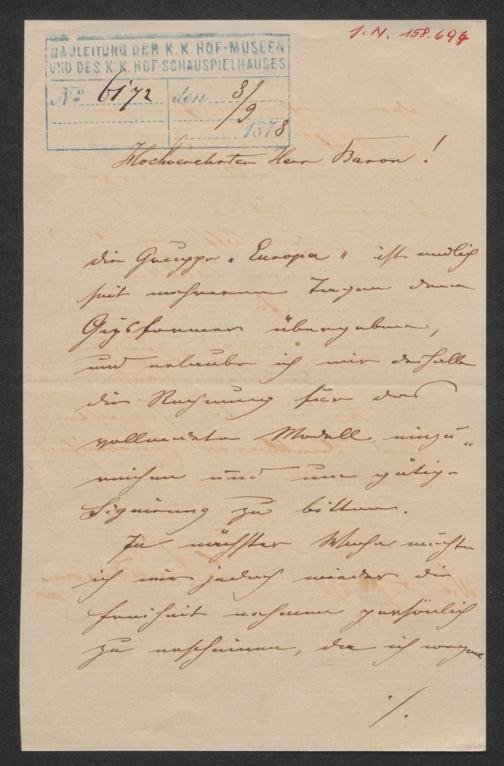 J. N. 158.694
BAULEITUNG DER K. K. HOF-MUSEEN
UND DES K. K. HOF SCHAUSPIELHAUSES
No 6172 den 8/9
1878
Hochverehrter Herr Baron!
die Gruppe „Europa“ ist endlich
seit mehreren Tagen dem
Gypsformer übergeben,
und erlaube ich mir deshalb
die Rechnung für das
vollendete Modell einzu„
reichen und um gütige
Signirung zu bitten.
In nächster Woche möchte
ich mir jedoch wieder die
Freiheit nehmen persönlich
zu erscheinen, da ich wegen
./.